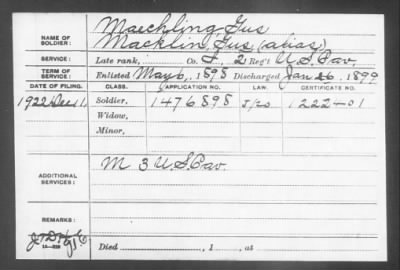 Maechling, Gus
NAME OF SOLDIER: Macklin, Gus (alias)
SERVICE: Late rank, Co. I, 2 Reg't U.S. Cav.
TERM OF SERVICE: Enlisted May 6, 1898 Discharged Jan 26, 1899
DATE OF FILING. CLASS. APPLICATION NO. LAW. CERTIFICATE NO.
1922 Dec 1. Soldier, 1476898 1222-01
Widow,
Minor,
ADDITIONAL SERVICES: M 3 U.S. Cav.
REMARKS:
Died , 1 , at